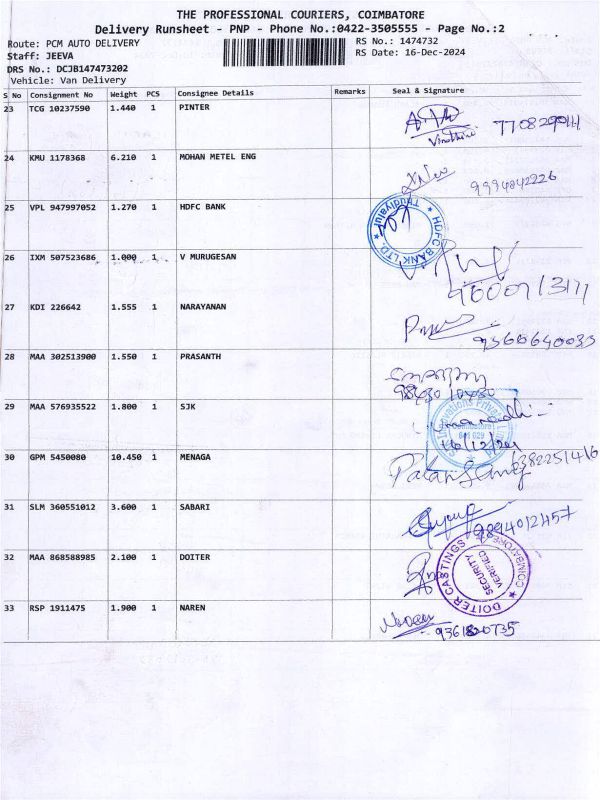 THE PROFESSIONAL COURIERS, COIMBATORE
Delivery Runsheet - PNP - Phone No.:0422-3505555 - Page No.:2
Route: PCM AUTO DELIVERY
RS No.: 1474732
Staff: JEEVA
RS Date: 16-Dec-2024
DRS No.: DCJB147473202
Vehicle: Van Delivery
S No Consignment No Weight PCS Consignee Details Remarks Seal & Signature
23 TCG 10237590 1.440 1 PINTER
24 KMU 1178368 6.210 1 MOHAN METEL ENG
9994842226
25 VPL 947997052 1.270 1 HDFC BANK
HDFC BANK LTD. * Thudiyalur *
26 IXM 507523686 1.000 1 V MURUGESAN
27 KDI 226642 1.555 1 NARAYANAN
9360640033
28 MAA 302513900 1.550 1 PRASANTH
98430 10430
29 MAA 576935522 1.800 1 SJK
16/12/24
30 GPM 5450080 10.450 1 MENAGA
6382251416
31 SLM 360551012 3.600 1 SABARI
9894012457
32 MAA 868588985 2.100 1 DOITER
DOITER CASTINGS * COIMBATORE
SECURITY
VERIFIED
33 RSP 1911475 1.900 1 NAREN
Naren